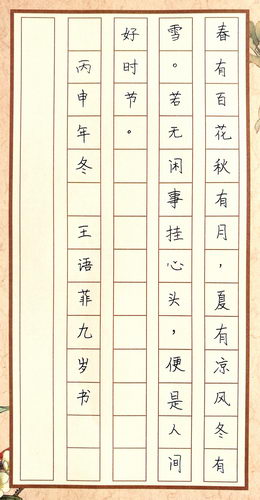 春有百花秋有月，夏有凉风冬有
雪。若无闲事挂心头，便是人间
好时节。
丙申年冬 王语菲九岁书